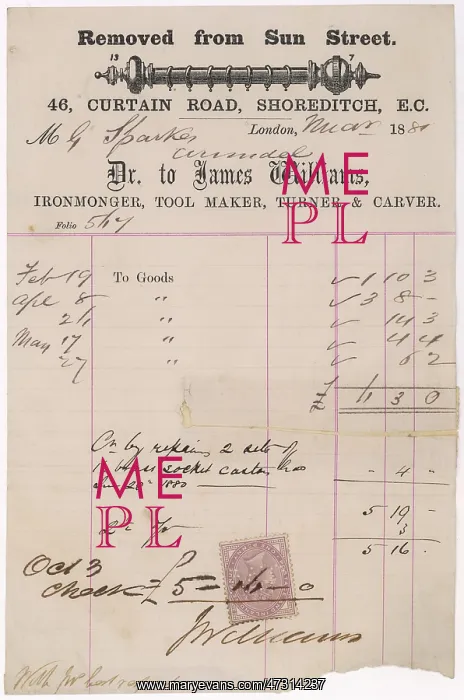 Removed from Sun Street.
13 7
46, CURTAIN ROAD, SHOREDITCH, E.C.
M G Sparkes London, Mar 1881
Arundel
Dr. to James Williams,
IRONMONGER, TOOL MAKER, TURNER & CARVER.
Folio 517
Feb 19 To Goods ✓ 1 10 3
Apl 8 " ✓ 3 8 -
21 " ✓ 14 3
May 17 " ✓ 4 4
27 " ✓ 6 2
3 0
Cr by repairs 2 sets of
socket castors
1880 " 4 -
5 19 -
3
5 16 -
Oct 3
Check £ 5 = 16 - 0
JWilliams
With
ME
PL
ME
PL
www.maryevans.com/47314237